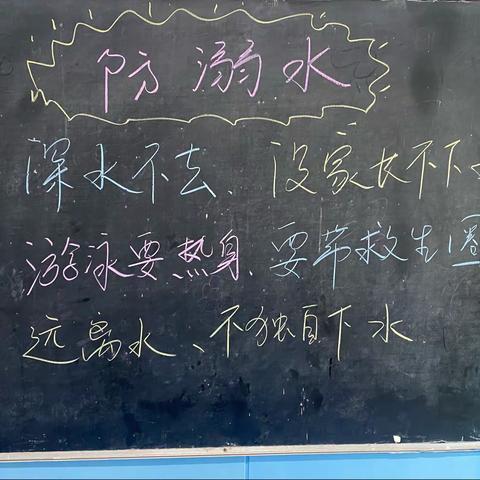 防溺水
深水不去、没家长不下
游泳要热身、要带救生圈
远离水、不独自下水